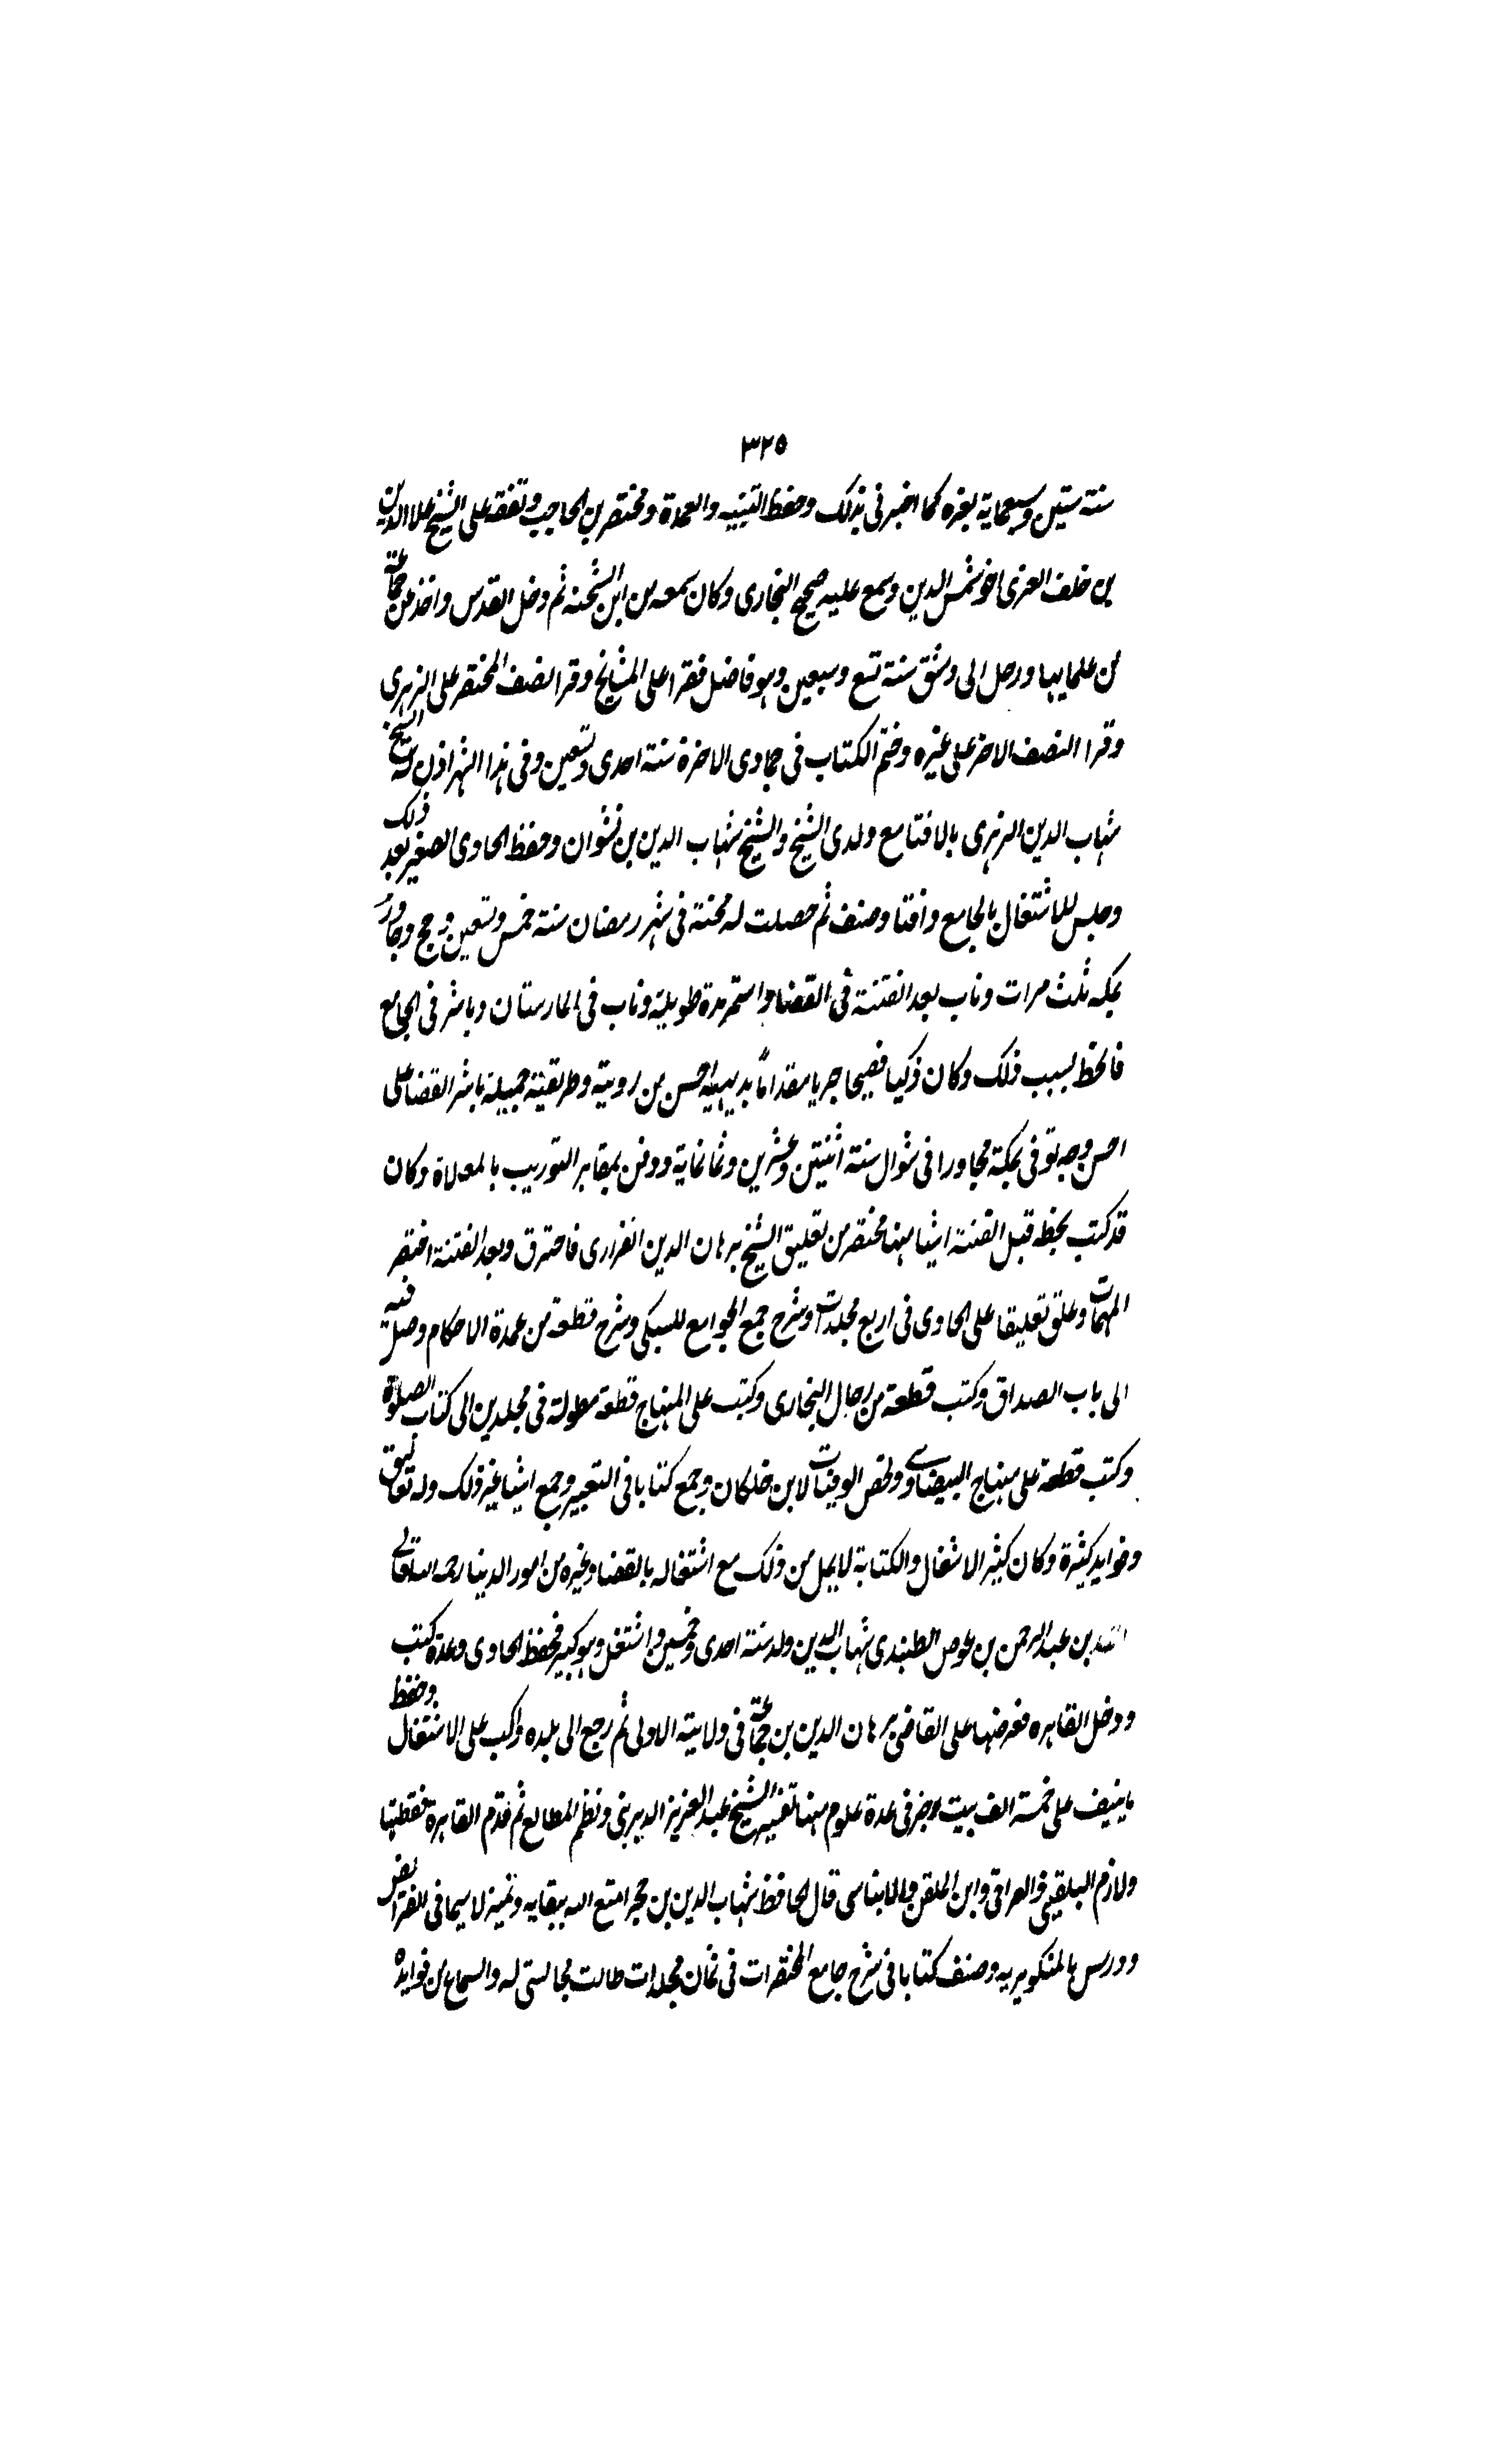 ٣٢٥
سنة ستين وسبعماية بغزه كما اخبر فى بذلك وحفظ التنبيه والعمدة ومختصر بن الحاجب وتفقه على الشيخ علا الدين
بن خلف الغزى اخو شمس الدين وسمع عليه صحيح البخارى وكان سمعه من ابن الشحنه ثم دخل القدس واخذ عن جماعة
من علمايها ورحل الى دمشق سنة تسع وسبعين وهو فاضل فقرا على المشايخ وقرا نصف المختصر على الزهرى
وقرا النصف الاخر على غيره وختم الكتاب فى جمادى الاخرة سنة احدى وتسعين وفى هذا الشهر اذن له الشيخ
شهاب الدين الزهرى بالافتا مع ولدى الشيخ والشيخ شهاب الدين بن نشوان وحفظ الحاوى الصغير بعد ذلك
وجلس للاشتغال بالجامع وافتا وصنف ثم حصلت له محنة فى شهر رمضان سنة خمس وتسعين وحج وجاور
بمكه ثلث مرات وناب بعد الفتنة فى القضا واستمر مدة طويلة وناب فى المارستان وباشر فى الجامع
فانحط بسبب ذلك وكان ذكيا فصيحا جريا مقداما بديهته احسن من رويته وطريقته جميلة باشر القضا على
احسن وجه توفى بمكة مجاورا فى شوال سنة اثنتين وعشرين وثمانماية ودفن بمقابر التوريب بالمعلاة وكان
قد كتب بخطه قبل الفتنة اشيا منها مختصر من تعليق الشيخ برهان الدين الفزارى فاحترق وبعد الفتنة اختصر
المهمات وعلق تعليقا على الحاوى فى اربع مجلدات وشرح جمع الجوامع للسبكى وشرح قطعة من عمدة الاحكام وصل فيه
الى باب الصداق وكتب قطعة من رجال البخارى وكتب على المنهاج قطعة مطولة فى مجلدين الى كتاب الصلوة
وكتب قطعة على منهاج البيضاوى ولخص الوفيات لابن خلكان وجمع كتابا فى التعبير وجمع اشيا غير ذلك وله تعاليق
وفوايد كثيرة وكان كثير الاشغال والكتابة لا يمل من ذلك مع اشتغاله بالقضا وغيره من امور الدينا رحمه الله تعالى
بن عبد الرحمن بن عوض الطنبدى شهاب الدين ولد سنة احدى وخمسين واشتغل وهو كبير فحفظ الحاوى وعدة كتب
ودخل القاهره فعرضها على القاضى برهان الدين بن جماعة فى ولايته الاولى ثم رجع الى بلده واكب على الاشتغال وحفظ
ما ينيف على خمسة الف بيت رجز فى عدة علوم منها تفسير الشيخ عبد العزيز الديرينى ونظم المطالع ثم قدم القاهرة فقطنها
ولازم البلقينى والعراقى وابن الملقن والابناسى قال الحافظ شهاب الدين بن حجر امتع الله ببقايه وتميز لا سيما فى الفرائض
ودرس بالمنكوتمريه وصنف كتابا فى شرح جامع المختصرات فى ثمان مجلدات طالت مجالستى له والسماع من فوايده